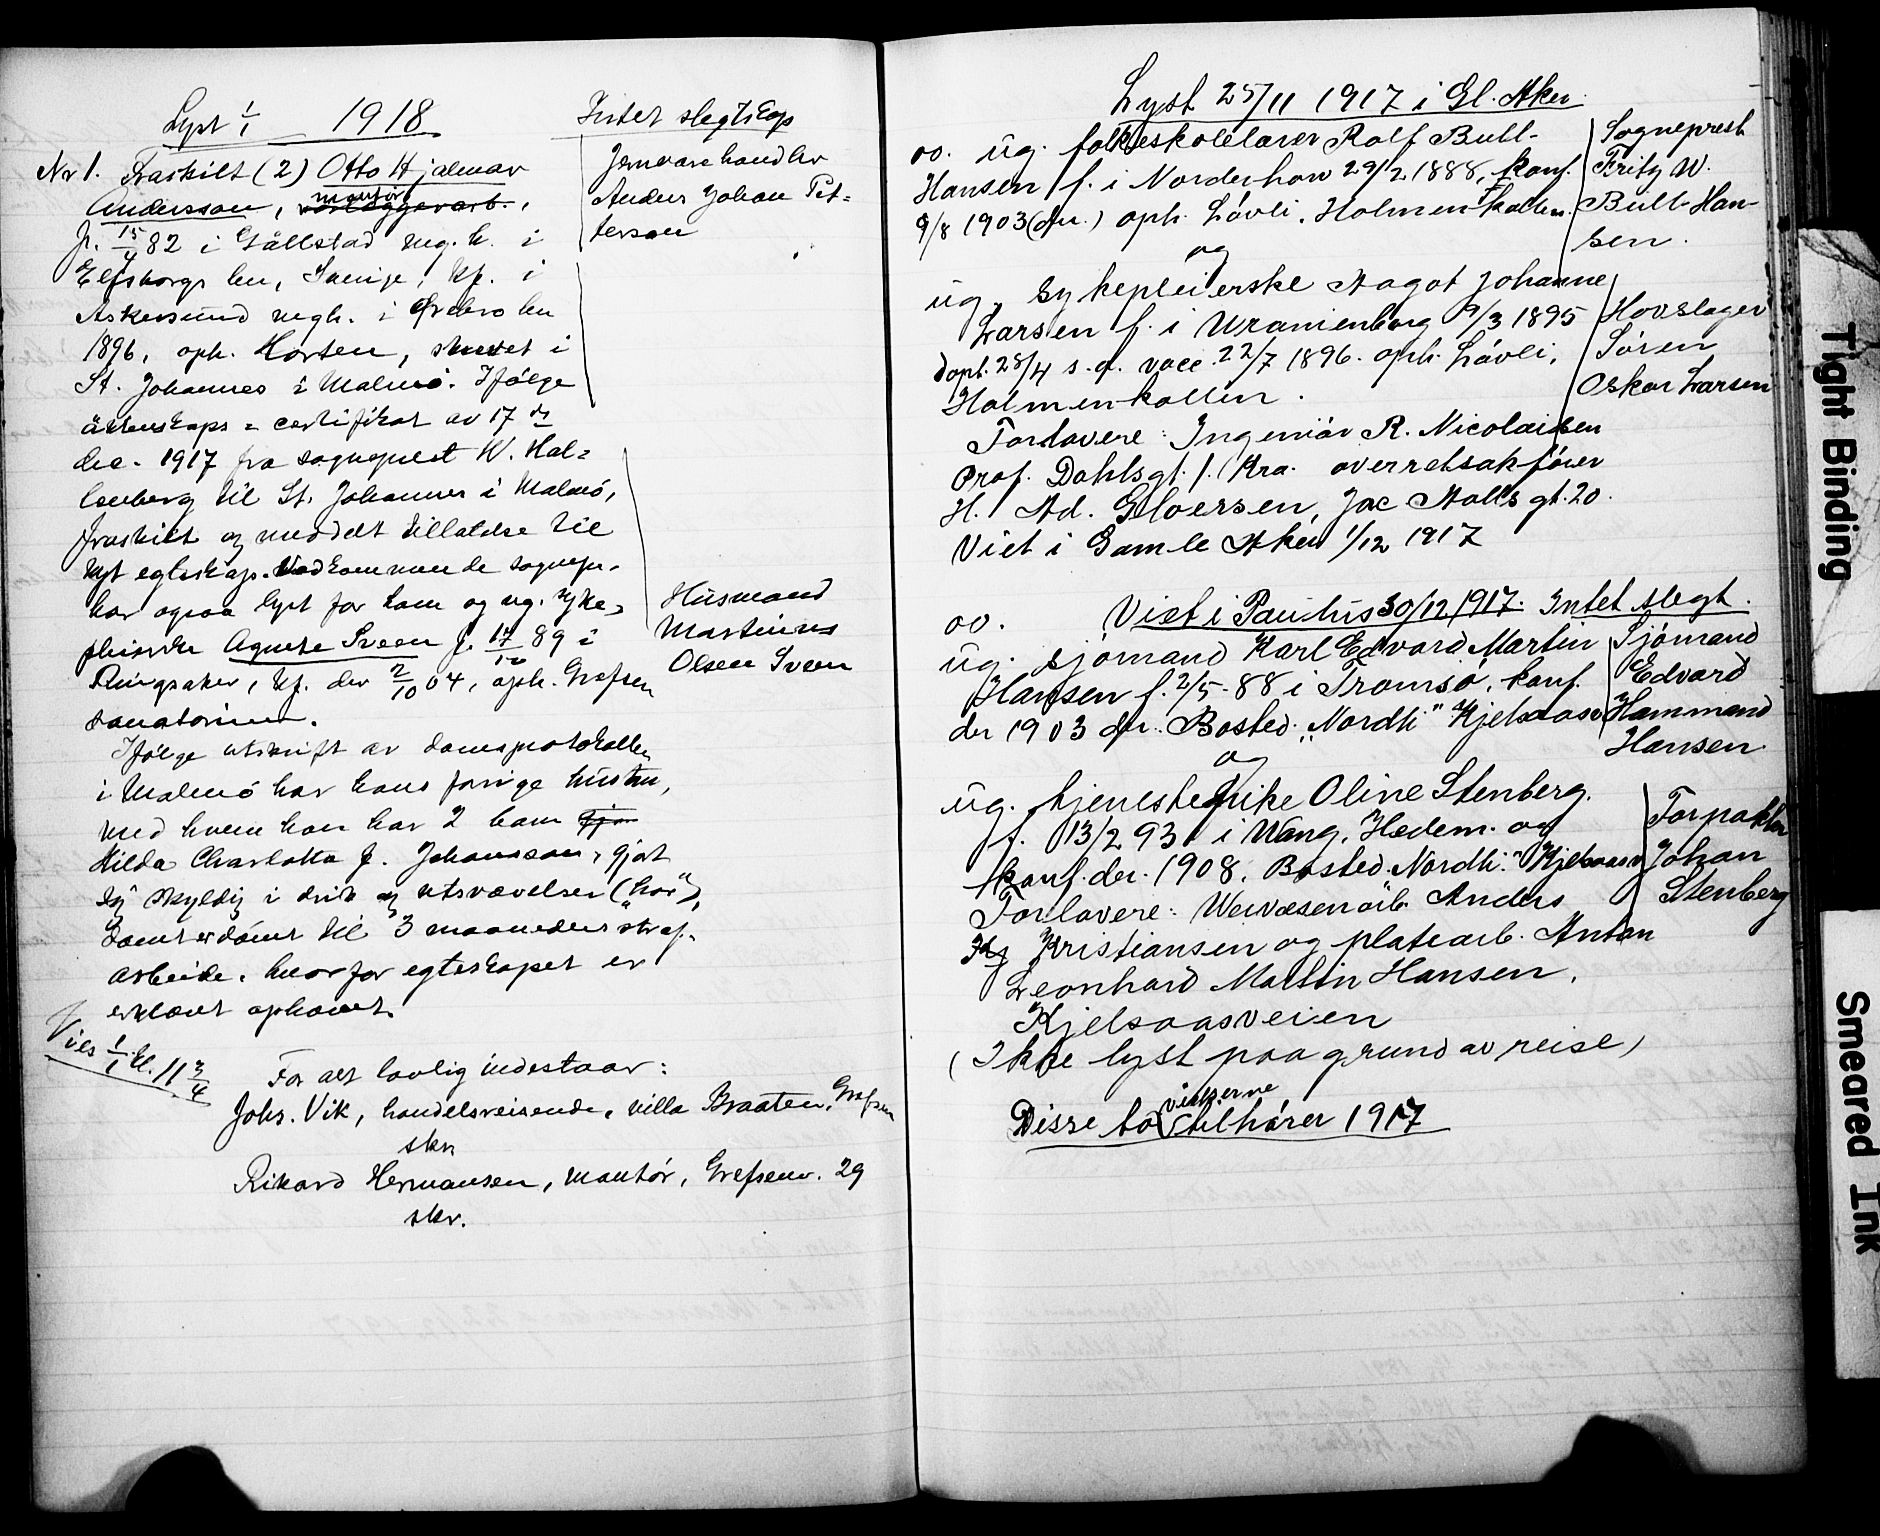 Lyst 1/1 1918 Intet slegtskap
Nr 1. Fraskilt (2) Otto Hjalmar
montør
Andersson, rørleggerarb.,
f. 15/4 82 i Gällstad mgh. i
Elfsborgs len, Sverige, kf. i
Askersund megh. i Ørebro len
1896, oph. Horten, skrevet i
St. Johannes i Malmö. Ifölge
äktenskaps = certifikat av 17 de
dec. 1917 fra sogneprest W. Hal=
lenberg til St. Johannes i Malmö,
fraskilt og meddelt tillatelse til
nyt egteskap. Vedkommende sognepr.
har ogsaa lyst for ham og ug. syke=
pleierske Agnete Sveen f. 17/12 89 i
Ringsaker, kf. der 2/10 04, oph. Grefsen
sanatorium.
Ifölge utskrift av domsprotokollen
i Malmö har hans forrige hustru,
med hvem han har 2 barn gjo
Hilda Charlotta f. Johansson, gjort
sig skyldig i drik og utsvævelser ("hor"),
samt er dömt til 3 maaneders straf.
arbeide, hvorfor egteskapet er
erklært ophævet.
Vies 1/1 kl. 11 3/4
For alt lovlig indestaar:
Johs. Vik, handelsreisende, villa Braaten, Grefsen
skr.
Rikard Hermansen, montör, Grefsenv. 29
skr.
Jernvarehandler
Anders Johan Pet=
terson
Husmand
Martinus
Olsen Sveen
Lyst 25/11 1917 i Gl. Aker.
oo. ug. folkeskolelærer Rolf Bull-
Hansen f. i Norderhov 29/2 1888, konf.
9/8 1903 (dr.) oph. Lövli, Holmenkollen.
og
ug. Sykepleierske Aagot Johanne
Larsen f. i Uranienborg 9/3 1895
döpt. 28/4 s.a. vacc. 22/7 1896. oph. Lövli,
Holmenkollen.
Forlovere: Ingeniör R. Nicolaisen
Prof. Dahlsgt. 1. Kra. overretsakförer
H. Ad. Gloersen, Jac Aalls gt. 20.
Viet i Gamle Aker 1/12 1917
Sogneprest
Fritz W.
Bull-Han-
sen.
Hovslager
Sören
Oskar Larsen
oo. Viet i Paulus 30/12 1917. Intet slegt.
ug. sjömand Karl Edvard Martin
Hansen f. 2/5-88 i Tromsö, konf.
der 1903 dr. Bosted: "Nordli" Kjelsaasv
og
ug. tjenestepike Oline Stenberg.
f. 13/2 93 i Vang, Hedem. og
konf. der. 1908. Bosted. Nordli." Kjelsaasv
Forlovere: Veivæsenarb. Anders
Kristiansen og platearb. Anton
Leonhard Martin Hansen.
Kjelsaasveien
(Ikke lyst paa grund av reise)
vielserne
Disse to tilhörer 1917
Sjömand
Edvard
Hammond
Hansen
Forpakter
Johan
Stenberg
Tight Binding
Smeared Ink